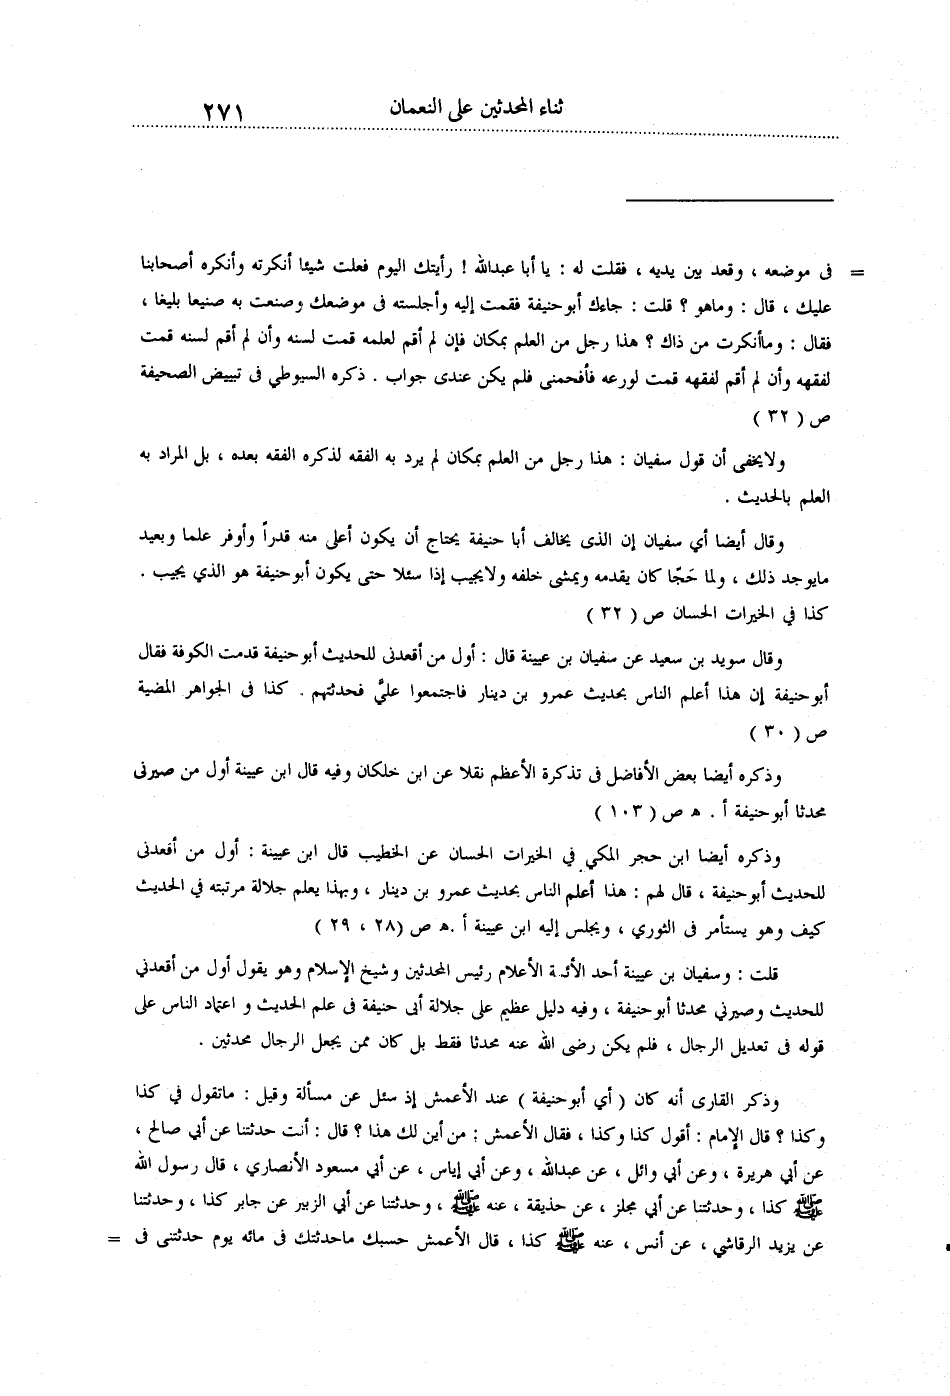 ثناء المحدثين على النعمان ٢٧١
= فى موضعه ، وقعد بين يديه ، فقلت له : يا أبا عبدالله ! رأيتك اليوم فعلت شيئا أنكرته وأنكره أصحابنا
عليك ، قال : وماهو ؟ قلت : جاءك أبوحنيفة فقمت إليه وأجلسته فى موضعك وصنعت به صنيعا بليغا ،
فقال : وماأنكرت من ذاك ؟ هذا رجل من العلم بمكان فإن لم أقم لعلمه قمت لسنه وأن لم أقم لسنه قمت
لفقهه وأن لم أقم لفقهه قمت لورعه فأفحمنى فلم يكن عندى جواب . ذكره السيوطي فى تبييض الصحيفة
ص ( ٣٢ )
ولايخفى أن قول سفيان : هذا رجل من العلم بمكان لم يرد به الفقه لذكره الفقه بعده ، بل المراد به
العلم بالحديث .
وقال أيضا أي سفيان إن الذى يخالف أبا حنيفة يحتاج أن يكون أعلى منه قدراً وأوفر علما وبعيد
مايوجد ذلك ، ولما حَجّا كان يقدمه ويمشى خلفه ولايجيب إذا سئلا حتى يكون أبوحنيفة هو الذي يجيب .
كذا في الخيرات الحسان ص ( ٣٢ )
وقال سويد بن سعيد عن سفيان بن عيينة قال : أول من أقعدنى للحديث أبوحنيفة قدمت الكوفة فقال
أبوحنيفة إن هذا أعلم الناس بحديث عمرو بن دينار فاجتمعوا عليَّ فحدثتهم . كذا فى الجواهر المضية
ص ( ٣٠ )
وذكره أيضا بعض الأفاضل فى تذكرة الأعظم نقلا عن ابن خلكان وفيه قال ابن عيينة أول من صيرنى
محدثا أبوحنيفة أ . ه ص ( ١٠٣ )
وذكره أيضا ابن حجر المكي في الخيرات الحسان عن الخطيب قال ابن عيينة : أول من أقعدنى
للحديث أبوحنيفة ، قال لهم : هذا أعلم الناس بحديث عمرو بن دينار ، وبهذا يعلم جلالة مرتبته في الحديث
كيف وهو يستأمر فى الثوري ، ويجلس إليه ابن عيينة أ .ه ص (٢٨ ، ٢٩ )
قلت : وسفيان بن عيينة أحد الأئمة الأعلام رئيس المحدثين وشيخ الإسلام وهو يقول أول من أقعدني
للحديث وصيرني محدثا أبوحنيفة ، وفيه دليل عظيم على جلالة أبى حنيفة فى علم الحديث و اعتماد الناس على
قوله فى تعديل الرجال ، فلم يكن رضى الله عنه محدثا فقط بل كان ممن يجعل الرجال محدثين .
وذكر القارى أنه كان ( أي أبوحنيفة ) عند الأعمش إذ سئل عن مسألة وقيل : ماتقول في كذا
وكذا ؟ قال الإمام : أقول كذا وكذا ، فقال الأعمش : من أين لك هذا ؟ قال : أنت حدثتنا عن أبي صالح ،
عن أبي هريرة ، وعن أبي وائل ، عن عبدالله ، وعن أبي إياس ، عن أبي مسعود الأنصاري ، قال رسول الله
ﷺ كذا ، وحدثتنا عن أبي مجلز ، عن حذيقة ، عنه ﷺ ، وحدثتنا عن أبي الزبير عن جابر كذا ، وحدثتنا
عن يزيد الرقاشي ، عن أنس ، عنه ﷺ كذا ، قال الأعمش حسبك ماحدثتك فى مائه يوم حدثتنى فى =